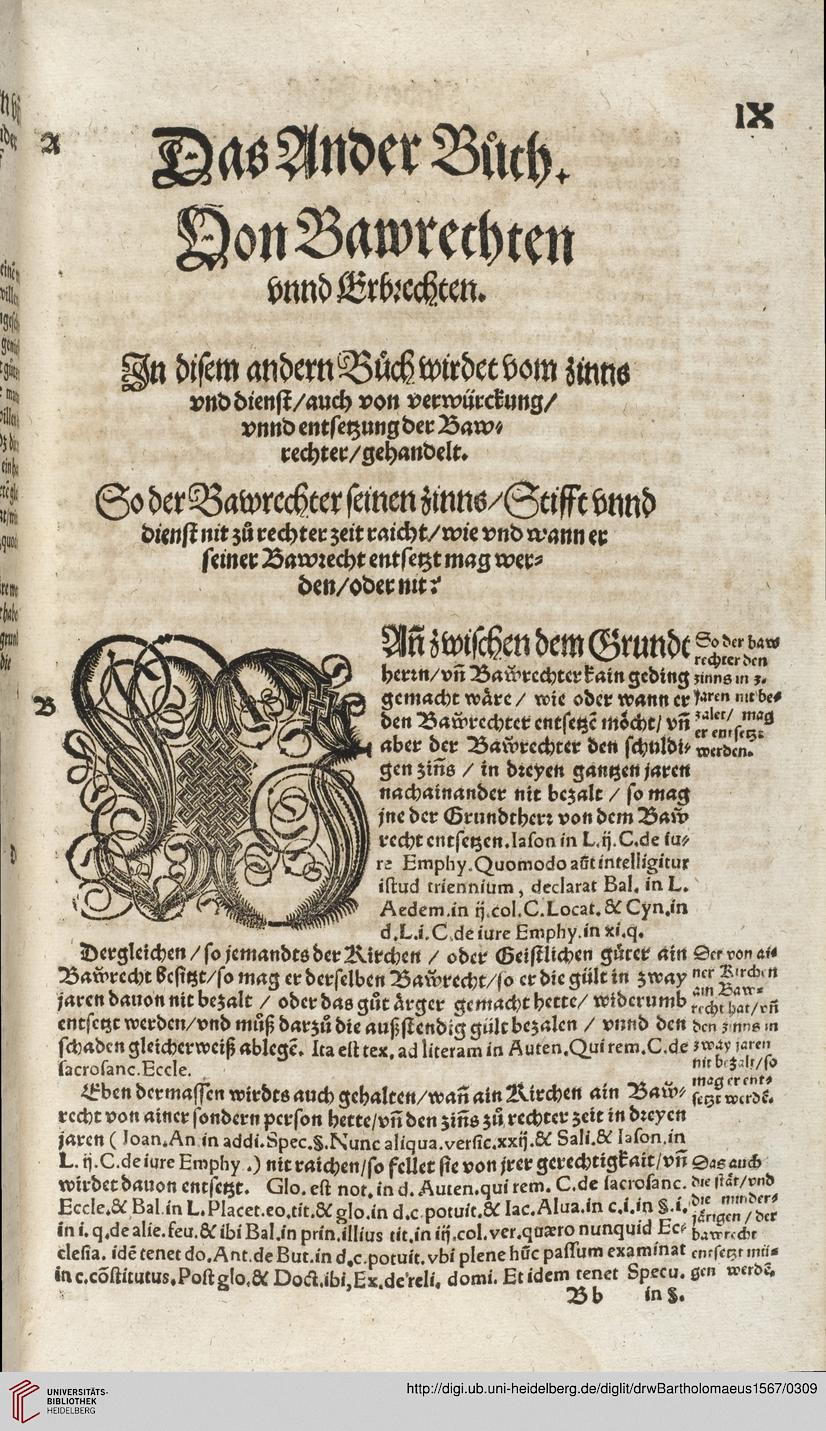 IX
A
Das Ander Bůch.
Von Bawrechten
vnnd Erbrechten.
In disem andern Bůch wirdet vom zinns
vnd dienst/auch von verwürckung/
vnnd entsetzung der Baw⸗
rechter/gehandelt.
So der Bawrechter seinen zinns/Stifft vnnd
dienst nit zů rechter zeit raicht/wie vnd wann er
seiner Bawrecht entsetzt mag wer⸗
den/oder nit?
B
WAñ zwischen dem Grundt
herrn/vñ Bawrechter kain geding
gemacht wäre / wie oder wann er
den Bawrechter entsetzẽ möcht/ vñ
aber der Bawrechter den schuldi⸗
gen ziñs / in dreyen gantzen jaren
nachainander nit bezalt / so mag
jne der Grundtherr von dem Baw
recht entsetzen. Iason in L.ij.C.de iu⸗
re Emphy. Quomodo aũt intelligitur
istud triennium, declarat Bal. in L.
Aedem.in ij.col.C.Locat.& Cyn.in
d.L.i.C.de iure Emphy.in xi.q.
So der baw
rechter den
zinns in 3.
jaren nit be⸗
zalet/ mag
er entsetzt
werden.
Dergleichen / so jemandts der Kirchen / oder Geistlichen gůter ain
Bawrecht besitzt/so mag er derselben Bawrecht/so er die gült in zway
jaren dauon nit bezalt / oder das gůt ärger gemacht hette/ widerumb
entsetzt werden/vnd můß darzů die außstendig gült bezalen / vnnd den
schaden gleicherweiß ablegẽ. Ita est tex. ad literam in Auten.Qui rem.C.de
sacrosanc.Eccle.
Der von ai⸗
ner Kirchen
ain Baw⸗
recht hat/vñ
den zinns in
zway jaren
nit bezalt/so
mag er ent⸗
setzt werdẽ.
Eben dermassen wirdts auch gehalten/wañ ain Kirchen ain Baw⸗
recht von ainer sondern person hette/vñ den ziñs zů rechter zeit in dreyen
jaren ( Ioan.An in addi.Spec.§.Nunc aliqua.versic.xxij.& Sali.& Iason.in
L. ij.C.de iure Emphy .) nit raichen/so fellet sie von jrer gerechtigkait/vñ
wirdet dauon entsetzt. Glo. est not. in d. Auten.qui rem. C.de sacrosanc.
Eccle.& Bal.in L.Placet.eo.tit.& glo.in d.c.potuit.& Iac.Alua.in c.i.in §.i.
in i. q.de alie.feu.& ibi Bal.in prin.illius tit.in iij.col.ver.quæro nunquid Ec⸗
clesia. idẽ tenet do. Ant.de But.in d.c.potuit. vbi plene hũc passum examinat
in c.cõstitutus.Post glo.& Doct.ibi,Ex.de reli. domi. Et idem tenet Specu.
Das auch
die stät/vnd
die minder⸗
järigen / der
bawrecht
entsetzt mü⸗
gen werdẽ.
Bb in §.
UNIVERSITÄTS-
BIBLIOTHEK
HEIDELBERG
http://digi.ub.uni-heidelberg.de/diglit/drwBartholomaeus1567/0309